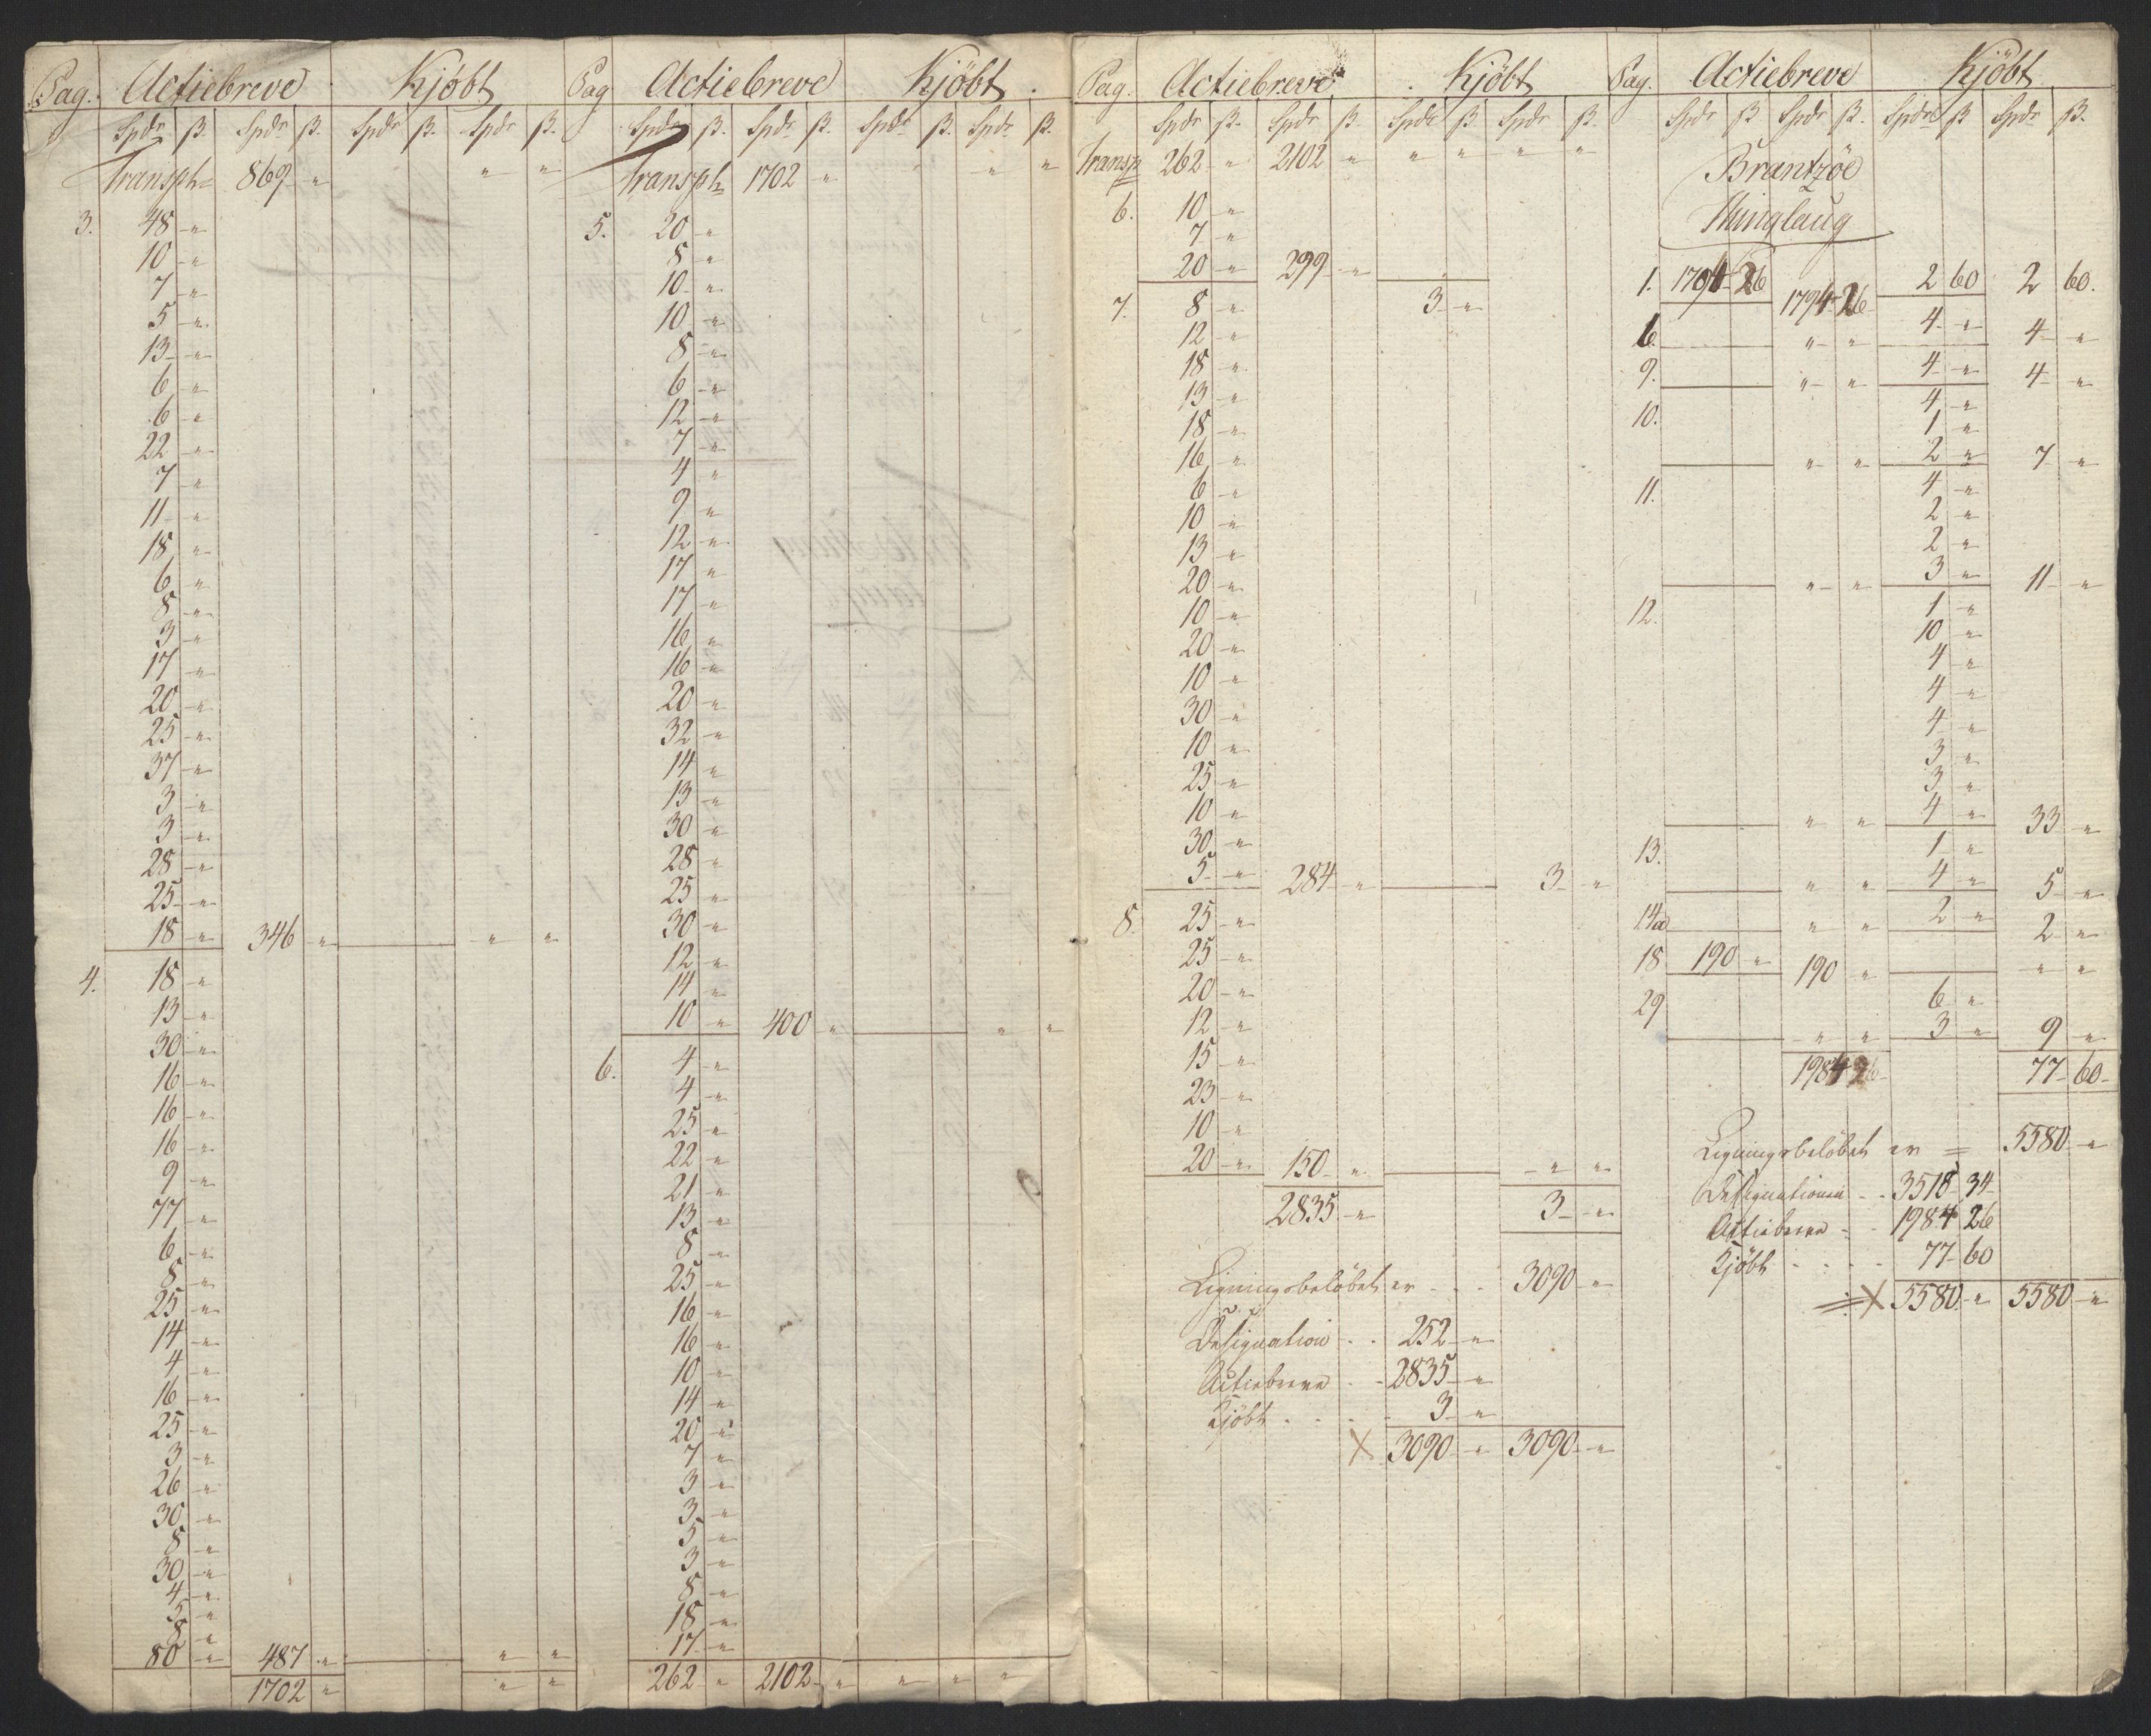 Pag. Actiebreve Kjøbt
Spdr ß. Spdr ß. Spdr ß. Spdr ß.
Transpt= 869 " " "
3. 48 "
10 "
7 "
5 "
13 "
6 "
6 "
22 "
7 "
11 "
18 "
6 "
8 "
3 "
17 "
20 "
25 "
37 "
3 "
3 "
28 "
25 "
18 " 346 " " "
4. 18 "
13 "
30 "
16 "
16 "
16 "
9 "
77 "
6 "
8 "
25 "
14 "
4 "
16 "
25 "
3 "
26 "
30 "
8 "
30 "
4 "
5 "
8 "
80 " 487 " " "
1702 " " "
Pag Actiebreve Kjøbt.
Spdr ß. Spdr ß. Spdr ß. Spdr ß.
Transpt 1702 " " " "
5. 20 "
8 "
10 "
10 "
8 "
6 "
12 "
7 "
4 "
9 "
12 "
17 "
17 "
16 "
16 "
20 "
32 "
14 "
13 "
30 "
28 "
25 "
30 "
12 "
14 "
10 " 400 " " "
6. 4 "
4 "
25 "
22 "
21 "
13 "
8 "
25 "
16 "
16 "
10 "
14 "
20 "
7 "
3 "
3 "
5 "
3 "
8 "
18 "
17 "
262 " 2102 " " " "
Pag. Actiebreve Kjøbt
Spdr ß. Spdr ß. Spdr ß Spdr ß.
Transp 262 " 2102 " " " " "
6. 10 "
7 "
20 " 299 "
7. 8 " 3 "
12 "
18 "
13 "
18 "
16 "
6 "
10 "
13 "
20 "
10 "
20 "
10 "
30 "
10 "
25 "
10 "
30 "
5 " 284 " 3 "
8. 25 "
25 "
20 "
12 "
15 "
23 "
10 "
20 " 150 " " "
2835 " 3 "
Ligningsbeløbet er . . . 3090 "
Designation . . 252 "
Actiebreve . . 2835 "
Kjøbt . . . . 3 "
X 3090 " 3090 "
Pag. Actiebreve Kjöbt
Spdr ß Spdr ß. Spdr ß Spdr ß.
Brantzöe
Thinglaug
1. 1794 26 1794 26 2 60 2 60.
6. " " 4 " 4 "
9. " " 4 " 4 "
10. 4 "
1 "
" " 2 " 7 "
11. 4 "
2 "
2 "
" " 3 " 11 "
12. 1 "
10 "
4 "
4 "
4 "
3 "
3 "
" " 4 " 33 "
13. 1 "
" " 4 " 5 "
14a " " 2 " 2 "
18 190 " 190 " " "
29 6 "
" " 3 " 9 "
1984 26 77 60
Ligningsbeløbet er = 5580 "
Designationen . . 3518 34
Actiebreve . . 1984 26
Kjøbt . . . . 77 60
X 5580 " 5580 "